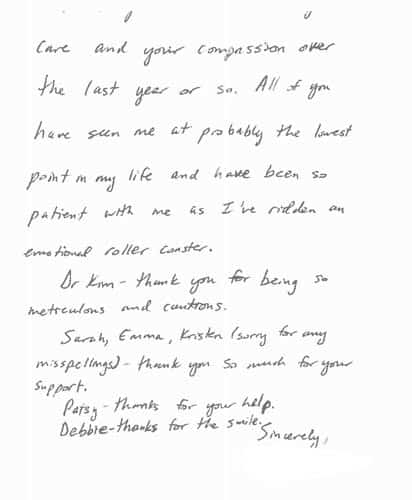 care and your compassion over
the last year or so. All of you
have seen me at probably the lowest
point in my life and have been so
patient with me as I've ridden an
emotional roller coaster.
Dr Kim - thank you for being so
meticulous and cautious.
Sarah, Emma, Kristen (sorry for any
misspellings) - thank you so much for your
support.
Patsy - thanks for your help.
Debbie - thanks for the smile.
Sincerely,